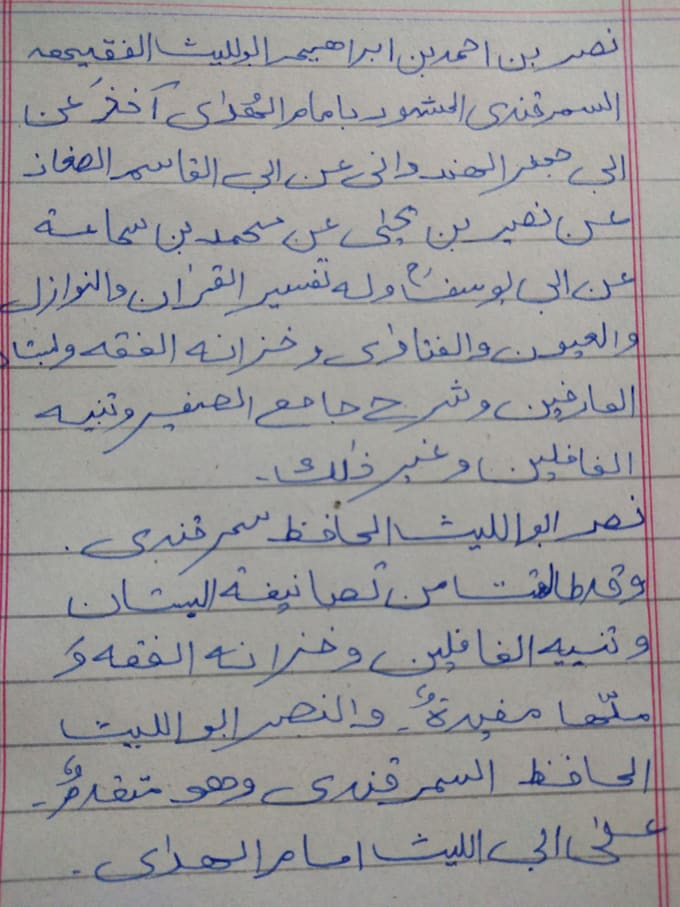 نصر بن احمد بن ابراهيم ابو الليث الفقيه
السمرقندى المشهور بامام الهُدٰى آخذَ عن
ابى جعفر الهندوانى عن ابى القاسم الصفار
عن نصير بن يحيٰى عن محمد بن سماعة
عن ابى يوسفؒ وله تفسير القرٰان والنوازل
والعيون والفتاوٰى وخزانه الفقه وبستان
العارفين وشرح جامع الصغير وتنبيه
الغافلين وغير ذٰلك۔
نصر ابو الليث الحافظ سمرقندى .
وقد طالعت من تصانيفة البستان
وتنبيه الغافلين وخزانه الفقه وَ
كلّها مفيدةٌ۔ والنصر ابو الليث
الحافظ السمرقندى وهو متقدمٌ۔
علٰى ابى الليث امام الهدٰى .